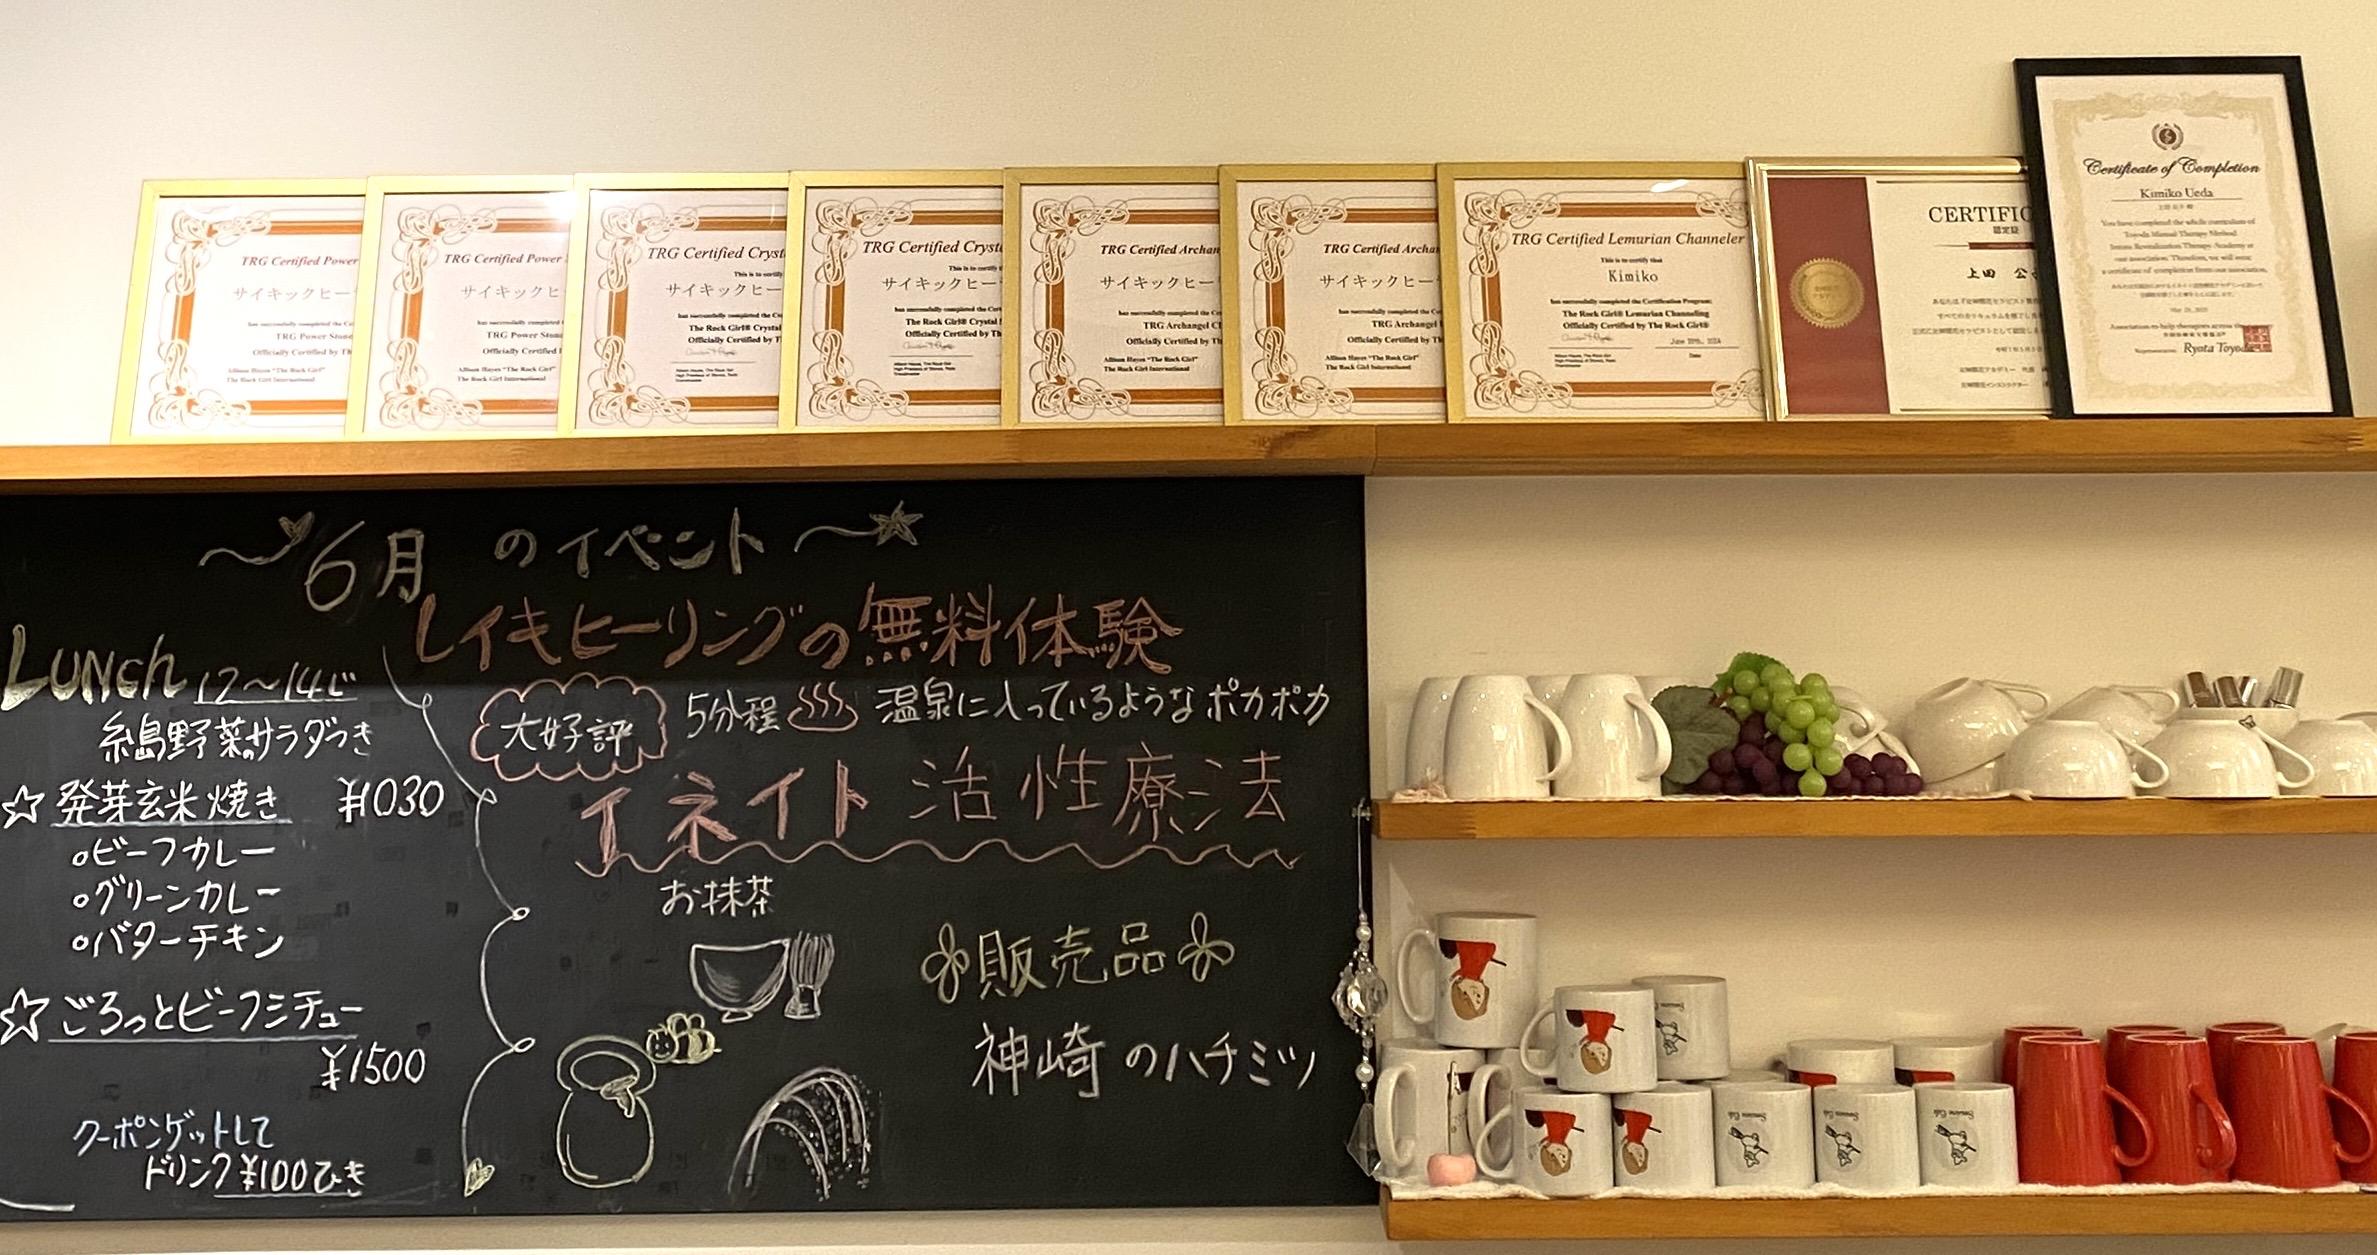 TRG Certified Power
サイキックヒー
has successfully completed the
TRG Power Stone
Officially Certified by Th
Allison Hayes "The Rock Girl"
The Rock Girl International
TRG Certified Power
サイキックヒー
has successfully completed
TRG Power Stone
Officially Certified
Allison Hayes "The Rock Girl"
The Rock Girl International
TRG Certified Cryst
This is to certify
サイキックヒー
has successfully completed the
The Rock Girl® Crystal
Officially Certified by T
TRG Certified Cryst
This is to certify
サイキックヒー
has successfully completed the
The Rock Girl® Crystal
Officially Certified by Th
TRG Certified Archan
サイキックヒー
has successfully completed the
TRG Archangel
Officially Certified by
Allison Hayes "The Rock Girl"
The Rock Girl International
TRG Certified Archa
サイキックヒー
has successfully completed
TRG Archangel
Officially Certified
Allison Hayes "The Rock Girl"
The Rock Girl International
TRG Certified Lemurian Channeler
This is to certify that
Kimiko
has successfully completed the Certification Program:
The Rock Girl® Lemurian Channeling
Officially Certified by The Rock Girl®
Date
CERTIFIC
認定証
上田 公
Certificate of Completion
Kimiko Ueda
You have completed the whole curriculum of
Toyoda Manual Therapy Method
Innate Revitalization Therapy Academy at
our association. Therefore, we will send
a certificate of completion from our association.
Association to help therapists across the
Representative Ryota Toyoda
~6月のイベント~
レイキヒーリングの無料体験
大好評
5分程 ♨ 温泉に入っているようなポカポカ
イネイト活性療法
お抹茶
販売品
神崎のハチミツ
LUNCH 12~14じ
糸島野菜のサラダつき
☆発芽玄米焼き ¥1030
○ビーフカレー
○グリーンカレー
○バターチキン
☆ごろっとビーフシチュー
¥1500
クーポンゲットして
ドリンク¥100ひき